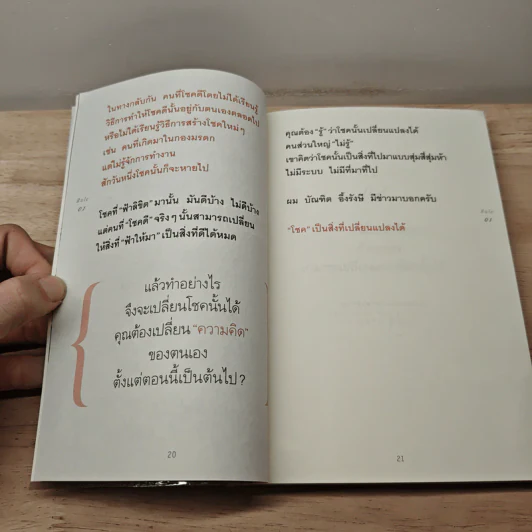 ในทางกลับกัน คนที่โชคดีโดยไม่ได้เรียนรู้
วิธีการทำให้โชคดีนั้นอยู่กับตนเองตลอดไป
หรือไม่ได้เรียนรู้วิธีการสร้างโชคใหม่ๆ
เช่น คนที่เกิดมาในกองมรดก
แต่ไม่รู้จักการทำงาน
สักวันหนึ่งโชคนั้นก็จะหายไป
โชคที่ "ฟ้าลิขิต" มานั้น มันดีบ้าง ไม่ดีบ้าง
แต่คนที่ "โชคดี" จริงๆ นั้นสามารถเปลี่ยน
ให้สิ่งที่ "ฟ้าให้มา" เป็นสิ่งที่ดีได้หมด
แล้วทำอย่างไร
จึงจะเปลี่ยนโชคนั้นได้
คุณต้องเปลี่ยน "ความคิด"
ของตนเอง
ตั้งแต่ตอนนี้เป็นต้นไป ?
20
คุณต้อง "รู้" ว่าโชคนั้นเปลี่ยนแปลงได้
คนส่วนใหญ่ "ไม่รู้"
เขาคิดว่าโชคนั้นเป็นสิ่งที่ไปมาแบบสุ่มสี่สุ่มห้า
ไม่มีระบบ ไม่มีที่มาที่ไป
ผม บัณฑิต อึ้งรังษี มีข่าวมาบอกครับ
"โชค" เป็นสิ่งที่เปลี่ยนแปลงได้
21